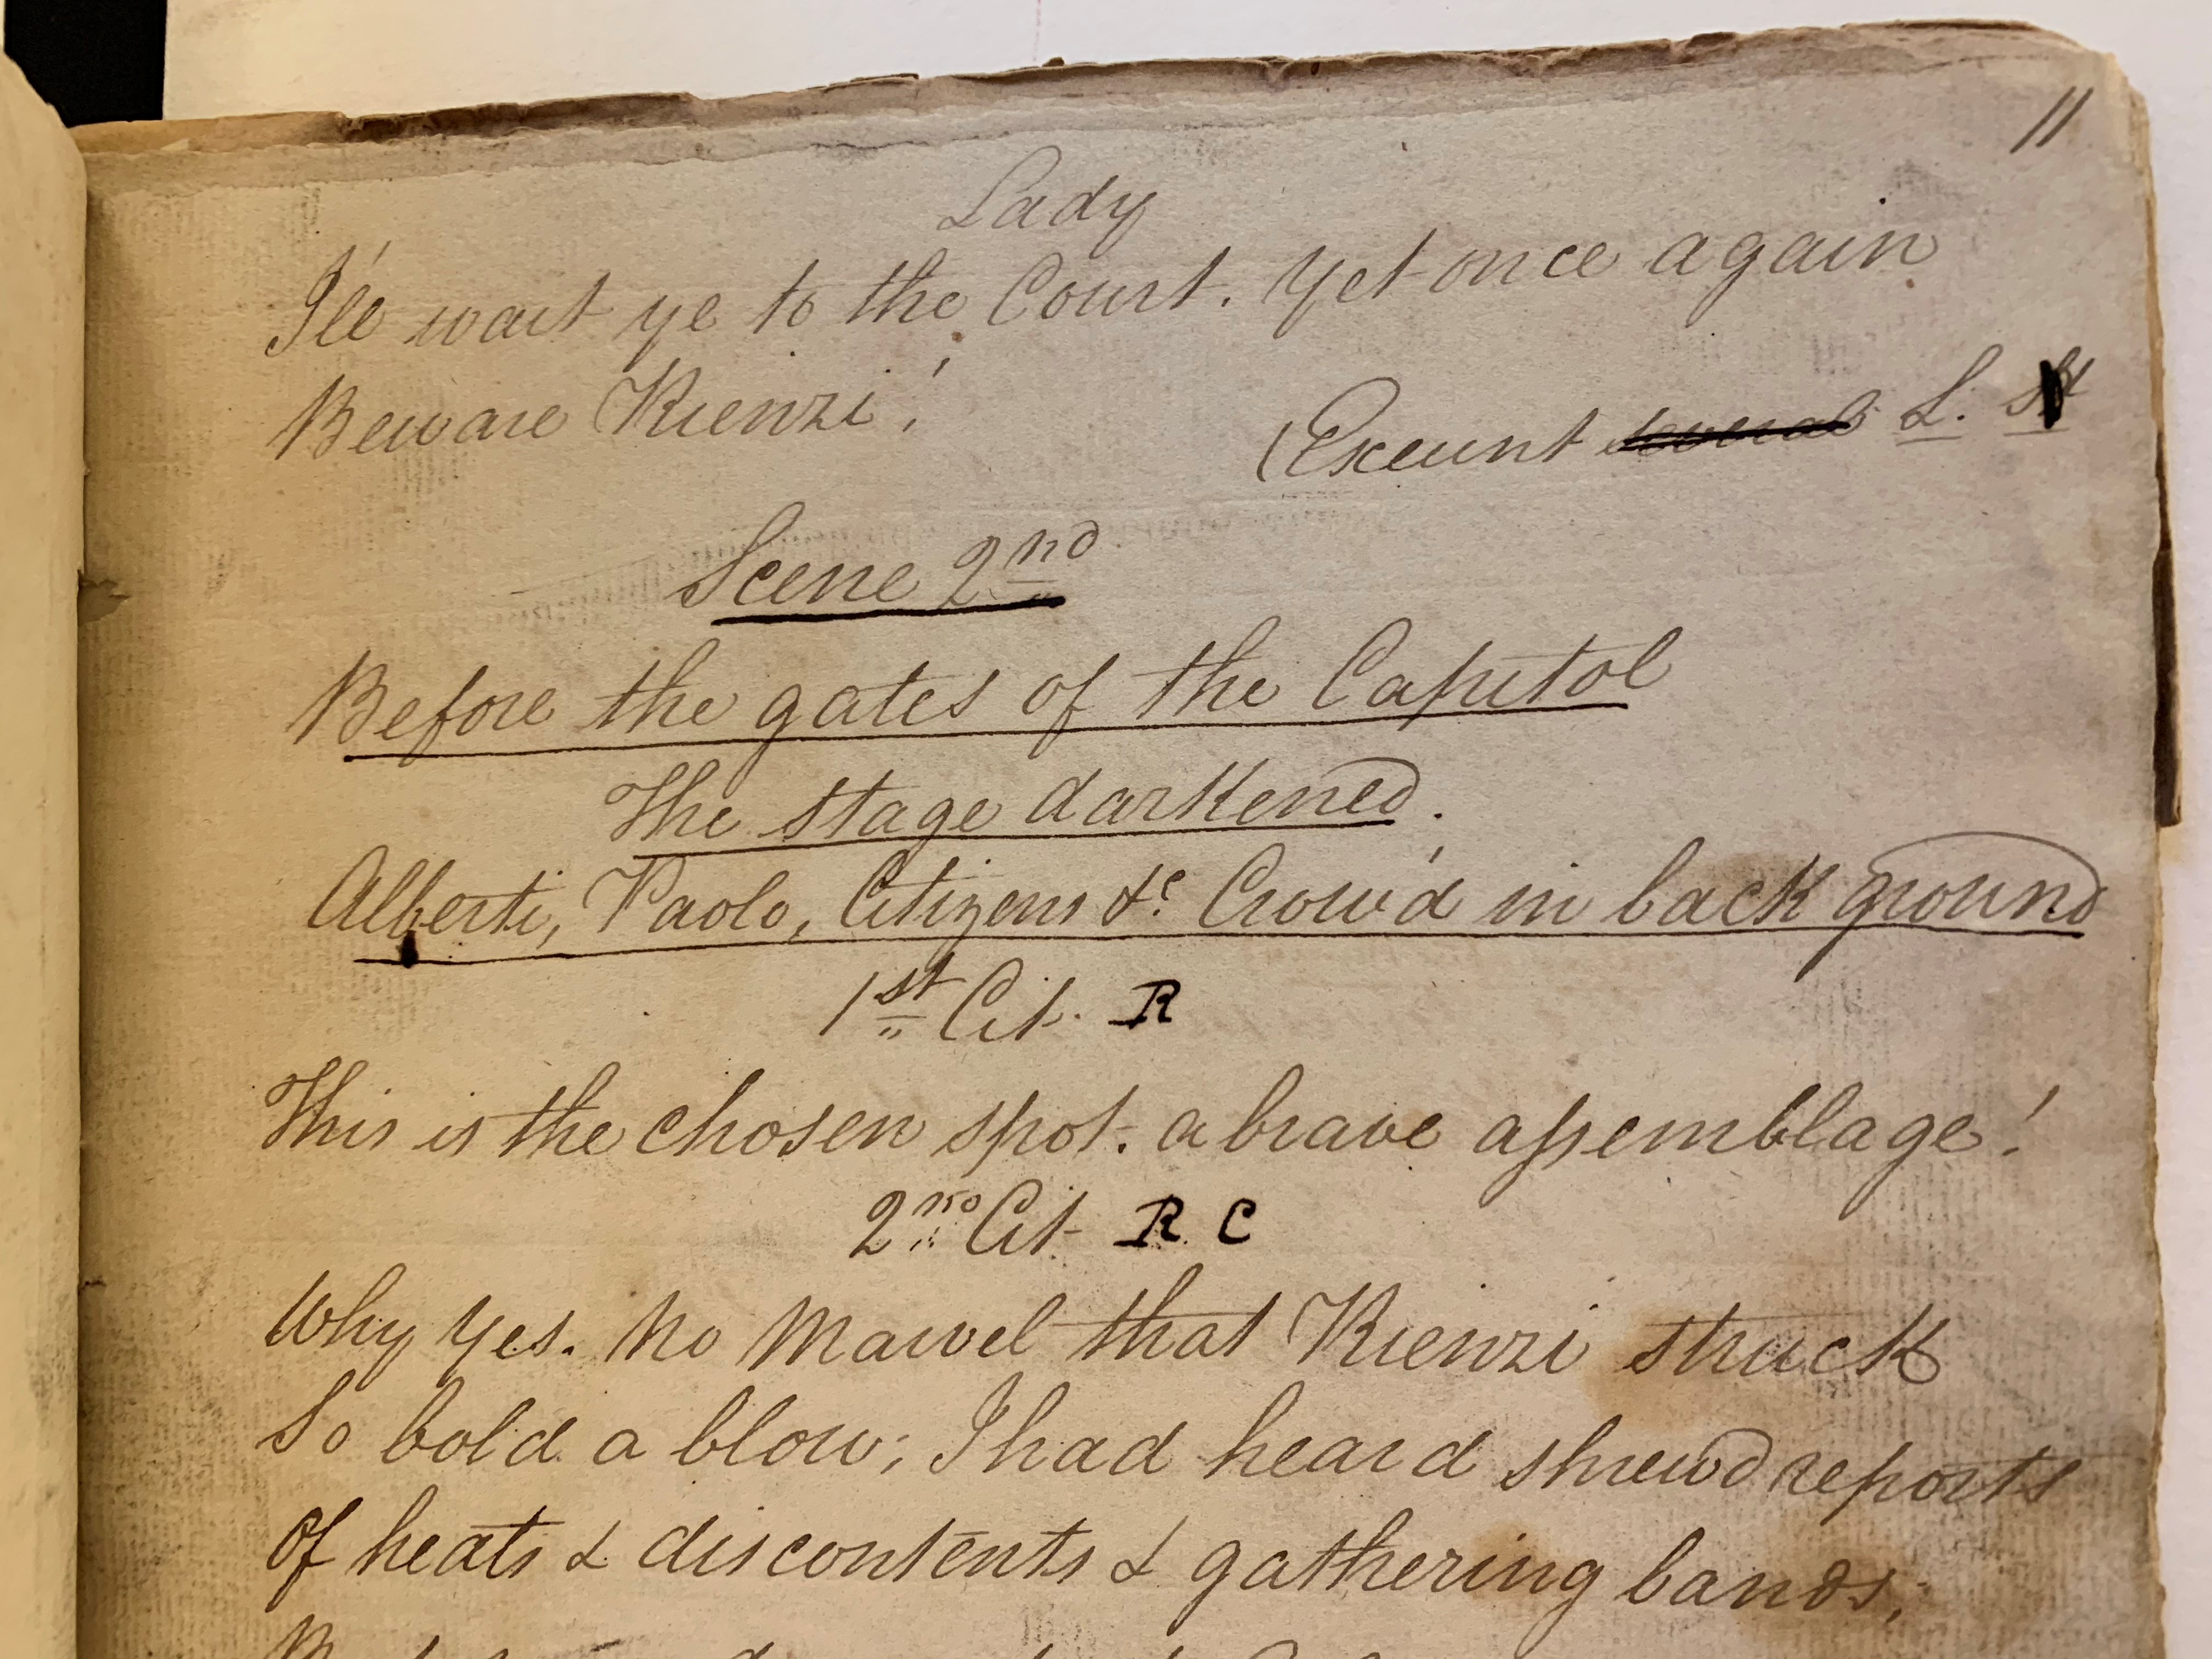 11
Lady
I'le wait ye to the Court. Yet once again
Beware Rienzi!
(Exeunt several L.
Scene 2nd
Before the gates of the Capitol
The stage darkened.
Alberti, Paolo, Citizens &c. Crowd in back ground
1st Cit. R
This is the chosen spot. a brave assemblage!
2nd Cit R C
Why yes. No Marvel that Rienzi struck
So bold a blow; I had heard shrewd reports
Of heats & discontents & gathering bands;